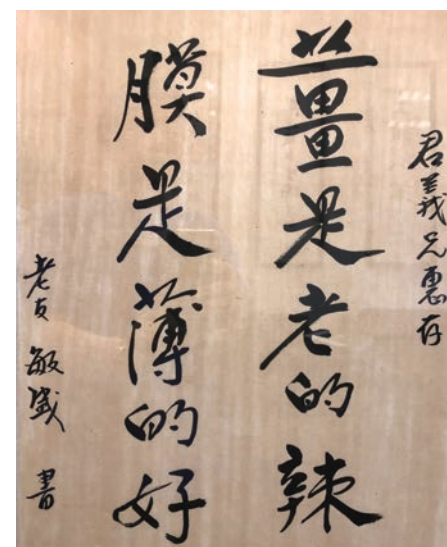 君義兄惠存
薑是老的辣
膜是薄的好
老友敏盛 書